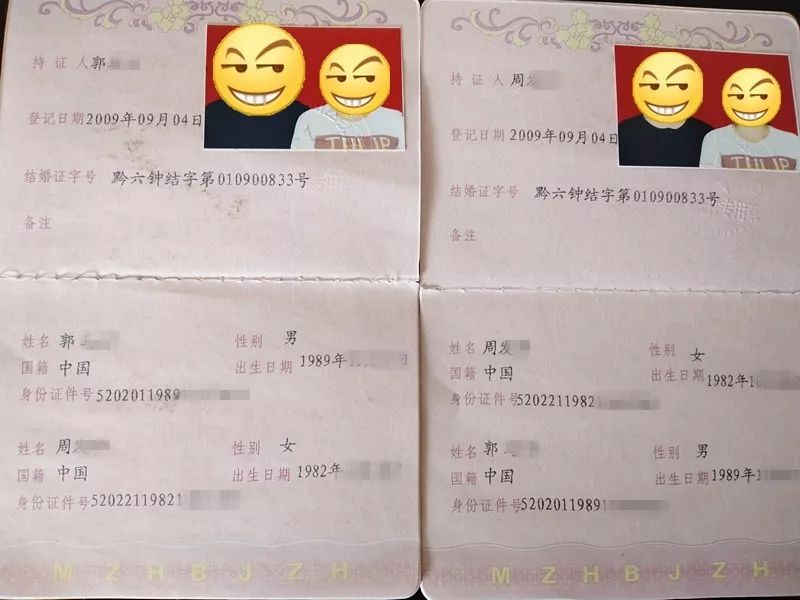 持证人郭
登记日期2009年09月04日
结婚证字号 黔六钟结字第010900833号
备注
TULIP
姓名 郭 性别 男
国籍 中国 出生日期 1989年
身份证件号5202011989
姓名 周发 性别 女
国籍 中国 出生日期 1982年
身份证件号52022119821
MZHBJZH
持证人周发
登记日期 2009年09月04日
结婚证字号 黔六钟结字第010900833号
专用章
备注
TULIP
姓名 周发 性别 女
国籍 中国 出生日期 1982年1
身份证件号5202211982
姓名 郭 性别 男
国籍 中国 出生日期 1989年1
身份证件号52020119891
MZHBJZH